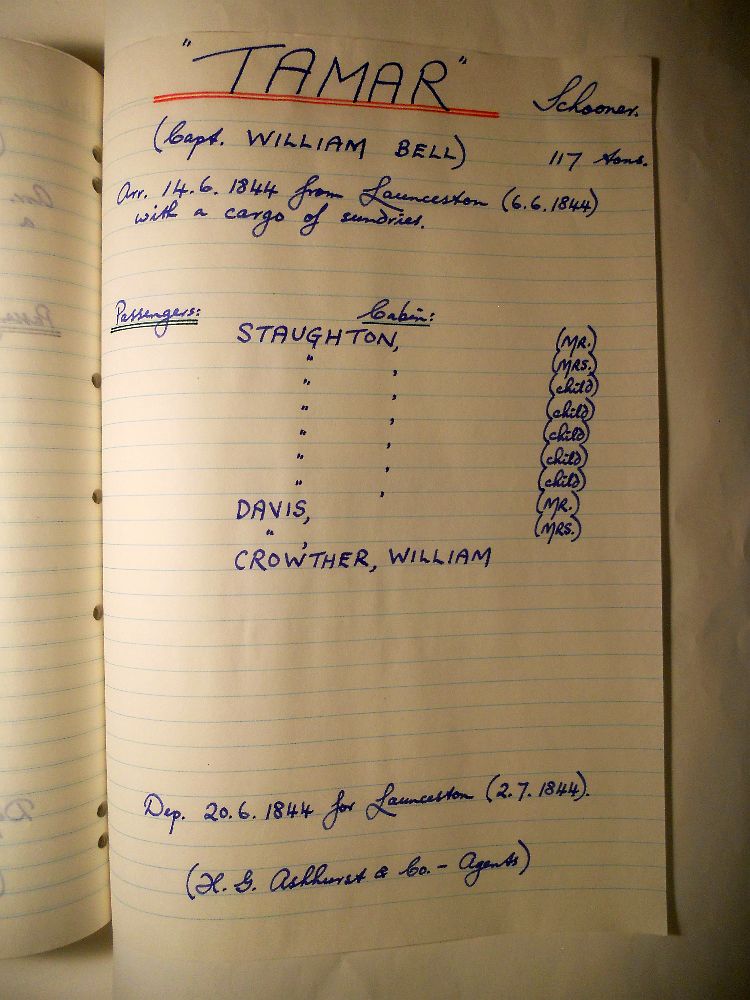 "TAMAR"
Schooner.
(Capt. WILLIAM BELL)
117 tons.
Arr. 14.6.1844 from Launceston (6.6.1844)
with a cargo of sundries.
Passengers: Cabin:
STAUGHTON, (MR.)
" , (MRS.)
" , (child)
" , (child)
" , (child)
" , (child)
" , (child)
DAVIS, (MR.)
" , (MRS.)
CROWTHER, WILLIAM
Dep. 20.6.1844 for Launceston (2.7.1844).
(H. G. Ashhurst & Co. - Agents)